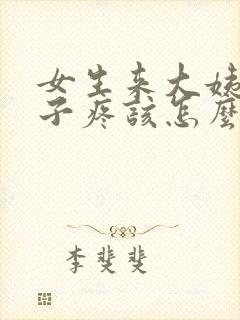 女生来大姨
子疼该怎麼
李斐斐